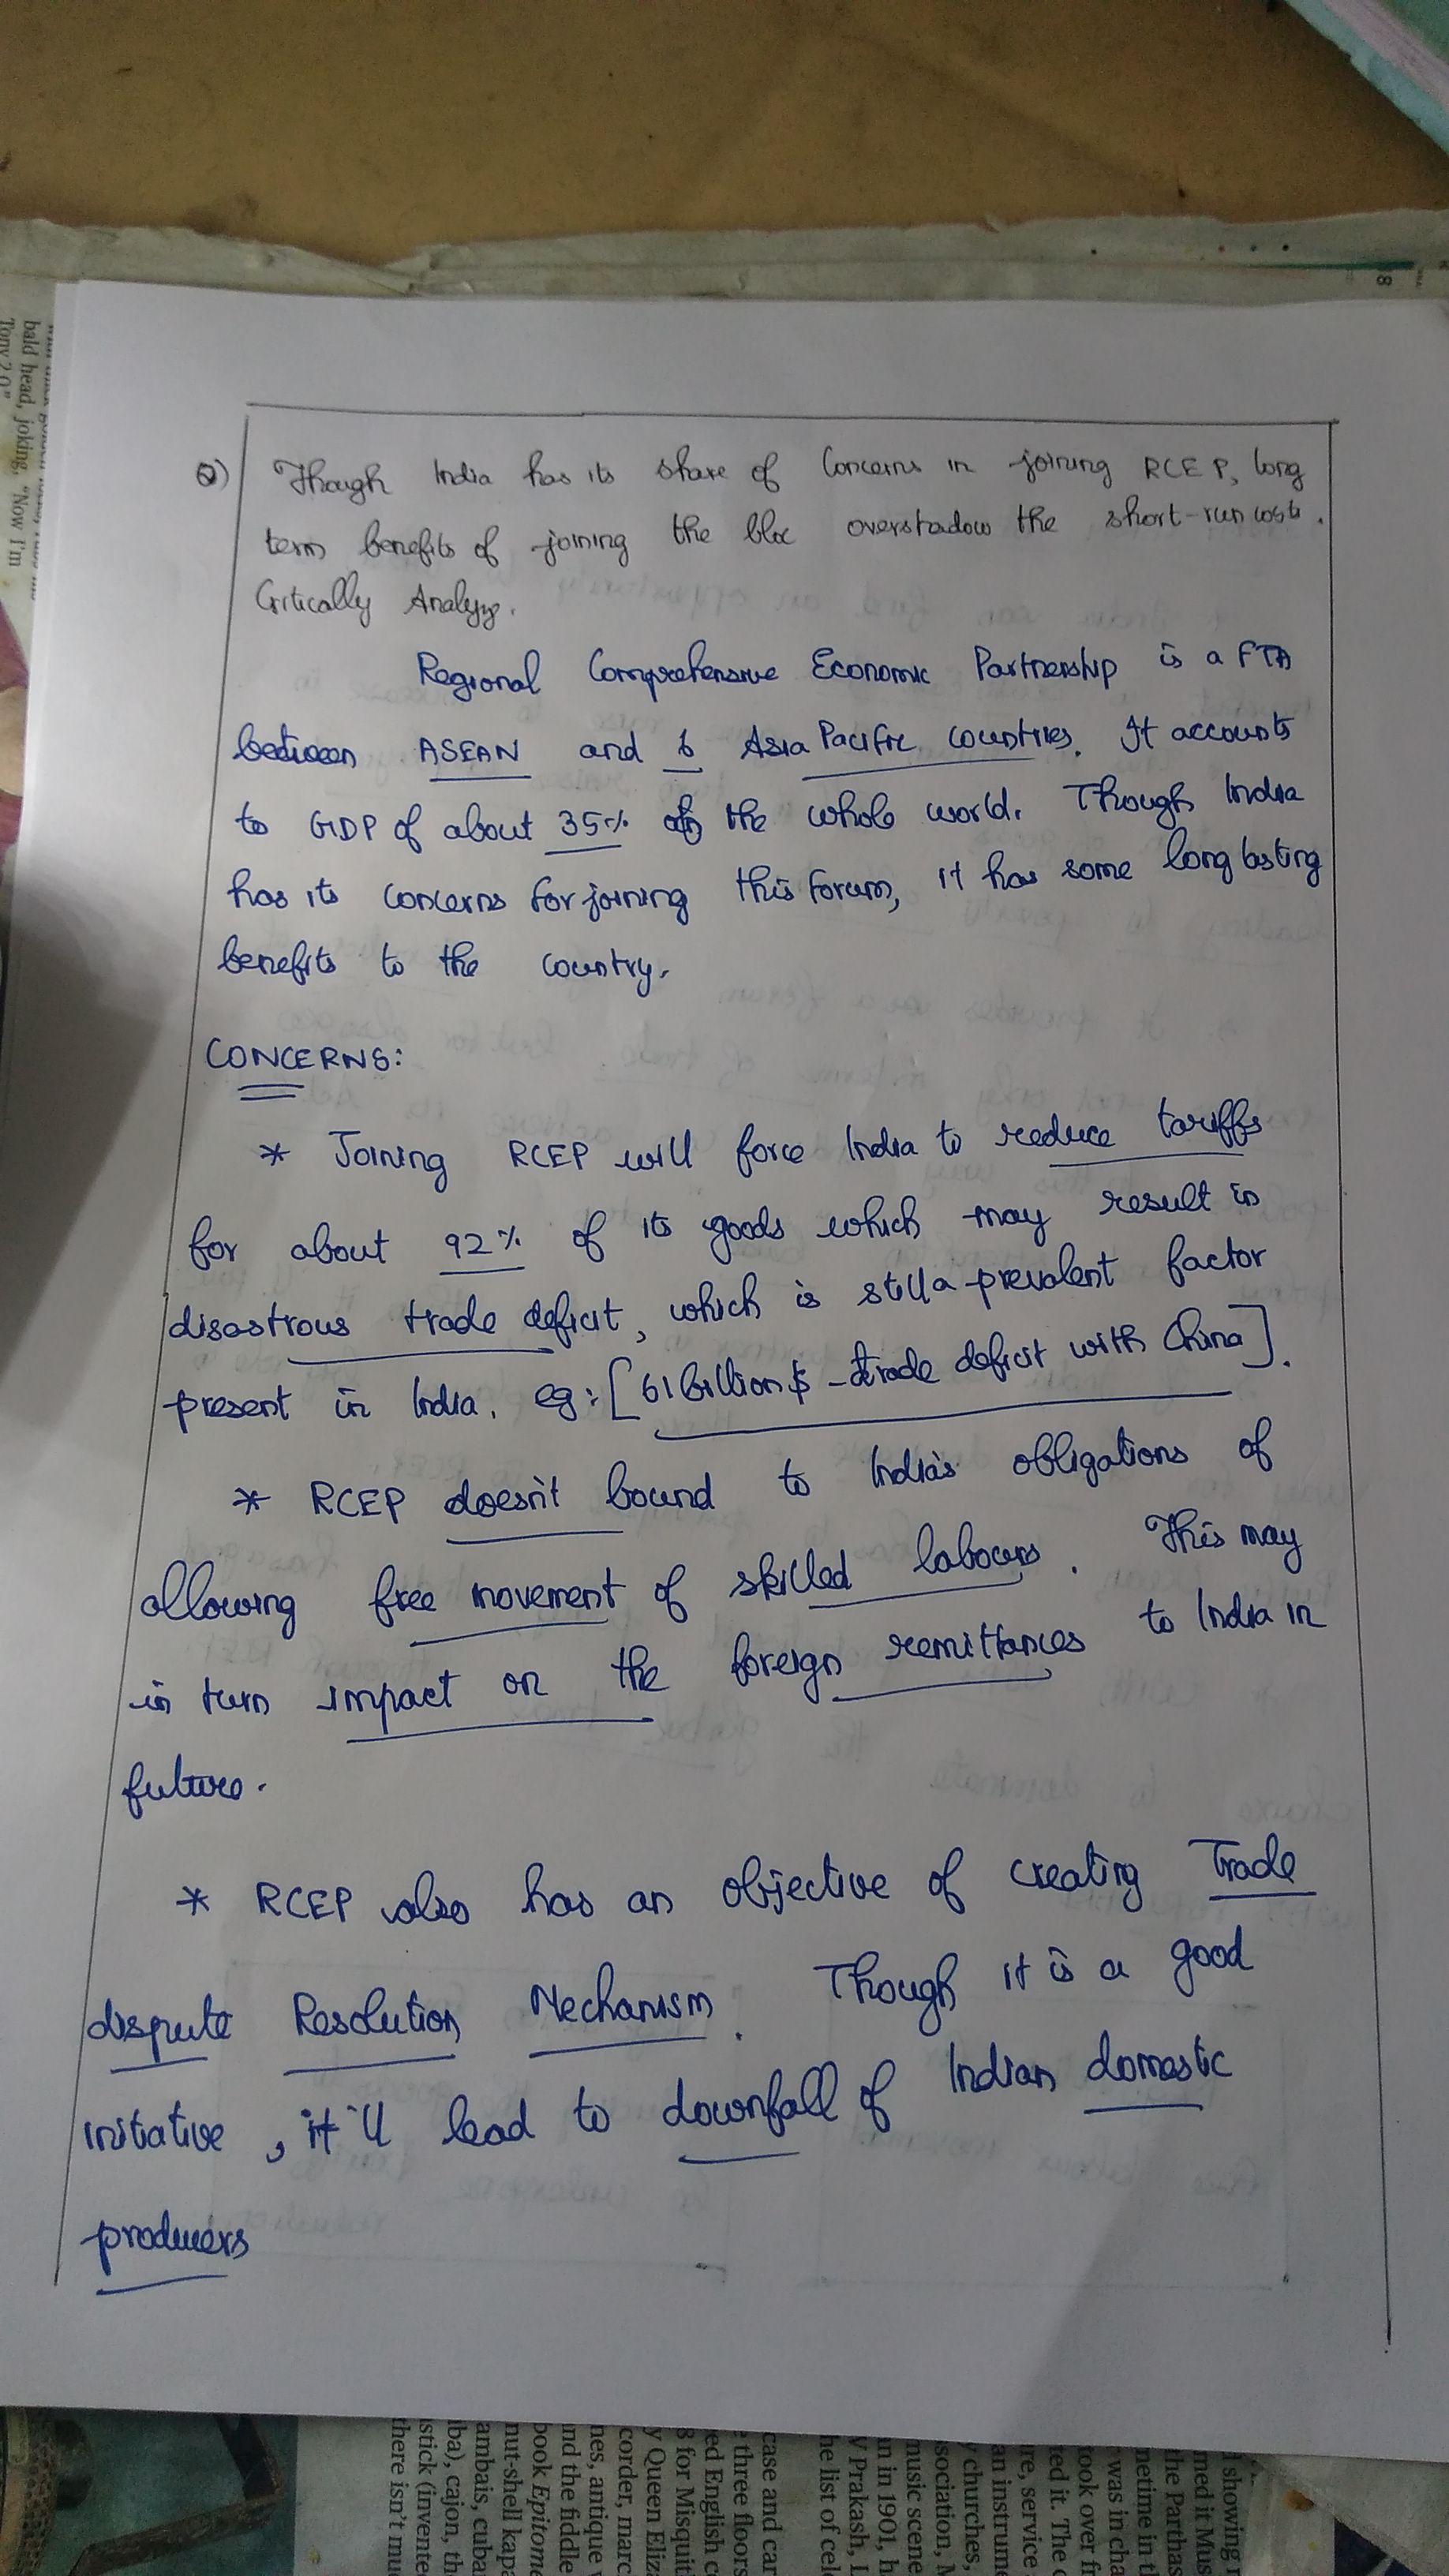 Q) Though India has its share of Concerns in joining RCEP, long
term benefits of joining the bloc overshadow the short-run costs.
Critically Analyze.
Regional Comprehensive Economic Partnership is a FTA
between ASEAN and 6 Asia Pacific countries. It accounts
to GDP of about 35% of the whole world. Though India
has its concerns for joining this forum, it has some long lasting
benefits to the country.
CONCERNS:
* Joining RCEP will force India to reduce tariffs
for about 92% of its goods which may result in
disastrous trade deficit, which is still a prevalent factor
present in India. eg: [61 billion $ - trade deficit with China].
* RCEP doesn't bound to India's obligations of
allowing free movement of skilled labours. This may
in turn impact on the foreign remittances to India in
future.
* RCEP also has an objective of creating Trade
dispute Resolution Mechanism. Though it is a good
initiative, it'll lead to downfall of Indian domestic
producers
bald head, joking, "Now I'm
Tony 2.0"
there isn't mu
stick (invente
iba), cajon, th
ambais, cuba
nut-shell kapa
book Epitome
nd the fiddle
nes, antique
corder, marc
y Queen Eliza
8 for Misquit
ed English c
three floors
case and car
he list of cele
V Prakash, L
n in 1901, h
music scene
sociation, M
churches,
an instrume
re, service
ted it. The
took over fr
was in cha
netime in th
the Parthas
med it Mus
showing